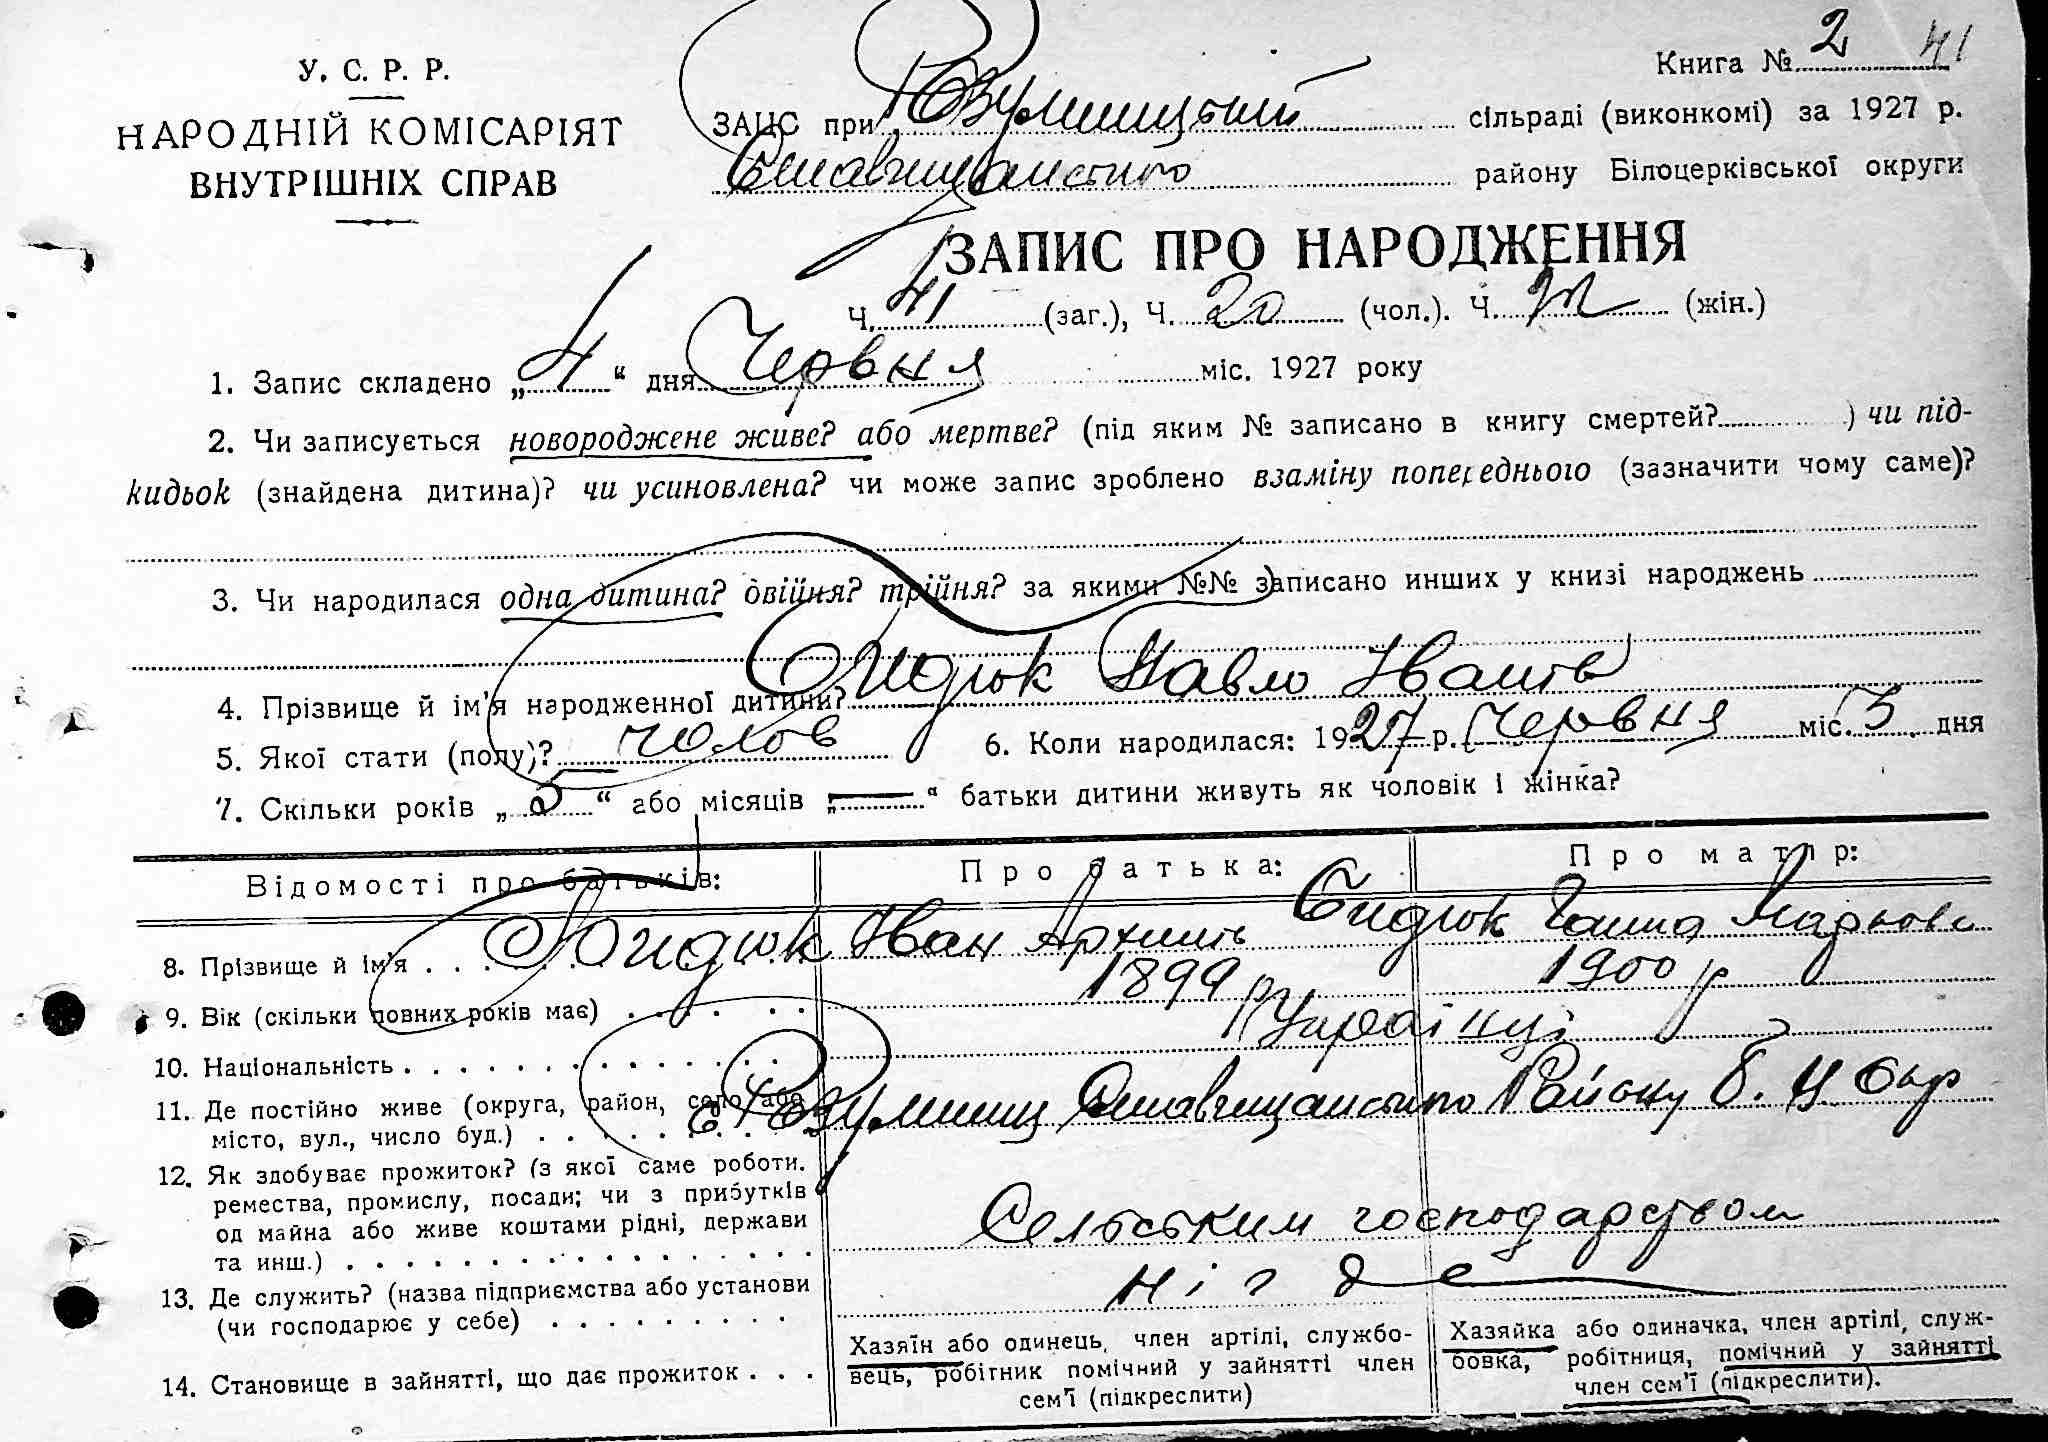 Книга № 2 41
У. С. Р. Р.
НАРОДНІЙ КОМІСАРІЯТ
ВНУТРІШНІХ СПРАВ
ЗАЦС при сільраді (виконкомі) за 1927 р.
Ставищанського району Білоцерківської округи
ЗАПИС ПРО НАРОДЖЕННЯ
Ч. 41 (заг.), Ч. 20 (чол.). Ч. (жін.)
1. Запис складено „4“ дня Червня міс. 1927 року
2. Чи записується новороджене живе? або мертве? (під яким № записано в книгу смертей? ) чи під-
кидьок (знайдена дитина)? чи усиновлена? чи може запис зроблено взаміну попереднього (зазначити чому саме)?
3. Чи народилася одна дитина? двійня? трійня? за якими №№ записано инших у книзі народжень
4. Прізвище й ім'я народженної дитини? Павло Іванів
5. Якої стати (полу)? чолов 6. Коли народилася: 1927 р. Червня міс. 3 дня
7. Скільки років „5“ або місяців „—“ батьки дитини живуть як чоловік і жінка?
Відомості про батьків: Про батька: Про матір:
8. Прізвище й ім'я Іван Архипів Ганна Маркова
9. Вік (скільки повних років має) 1899 р 1900 р
10. Національність Українці
11. Де постійно живе (округа, район, село або
місто, вул., число буд.) Ставищанського Району Б. Ц Окр
12. Як здобуває прожиток? (з якої саме роботи.
ремества, промислу, посади; чи з прибутків
од майна або живе коштами рідні, держави
та инш.) Сельським господарством
13. Де служить? (назва підприємства або установи
(чи господарює у себе) нігде
14. Становище в зайнятті, що дає прожиток
Хазяїн або одинець, член артілі, службо-
вець, робітник помічний у зайнятті член
сем'ї (підкреслити)
Хазяйка або одиначка, член артілі, служ-
бовка, робітниця, помічний у зайнятті
член сем'ї (підкреслити).